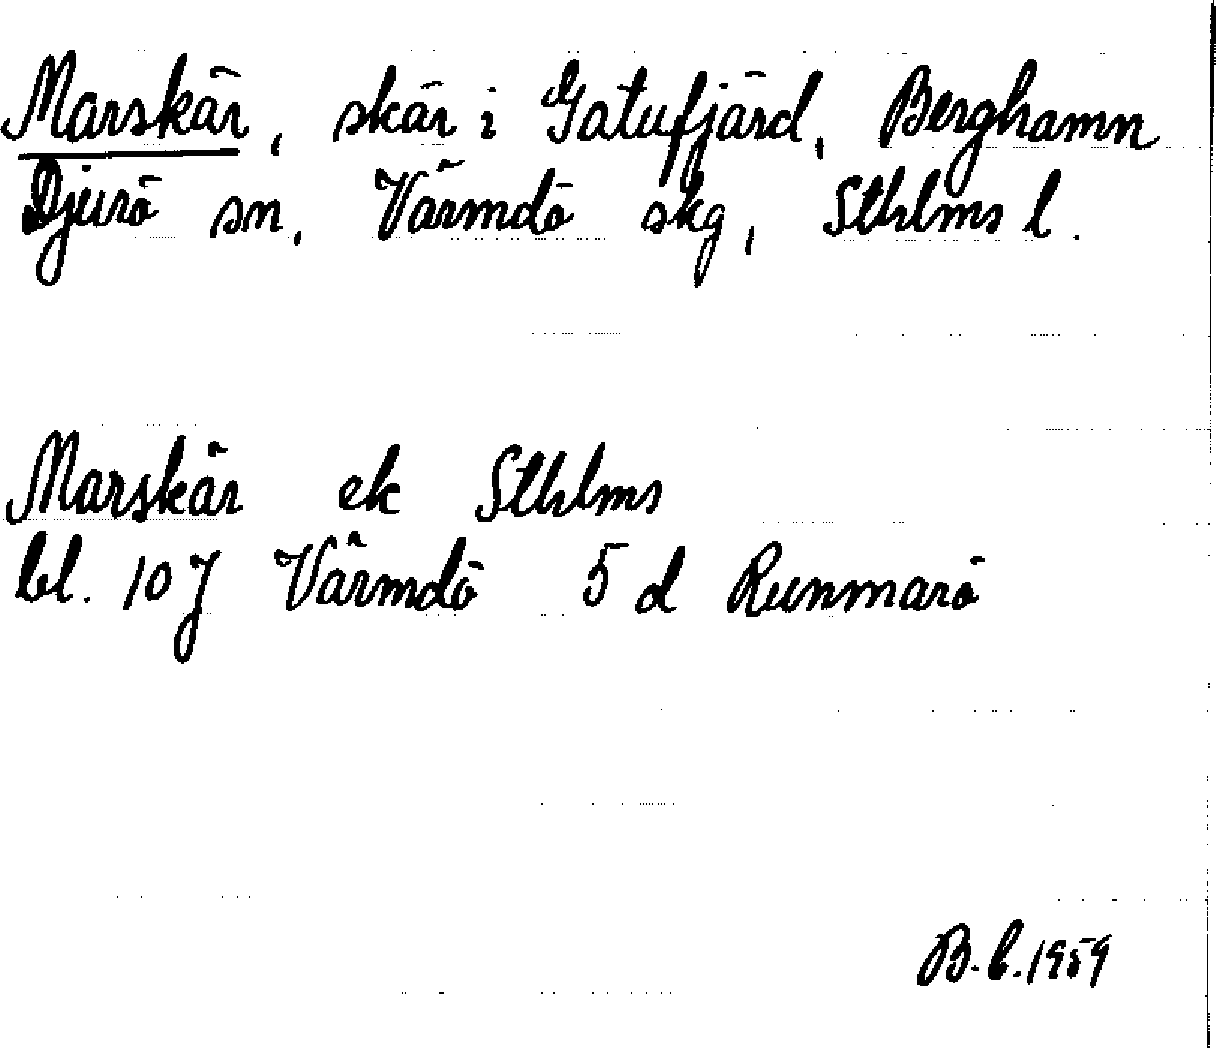 Marskär, skär i Gatufjärd, Berghamn
Djurö sn, Värmdö skg, Sthlms l.
Marskär ek Sthlms
bl. 10J Värmdö 5 d Runmarö
B.b. 1959